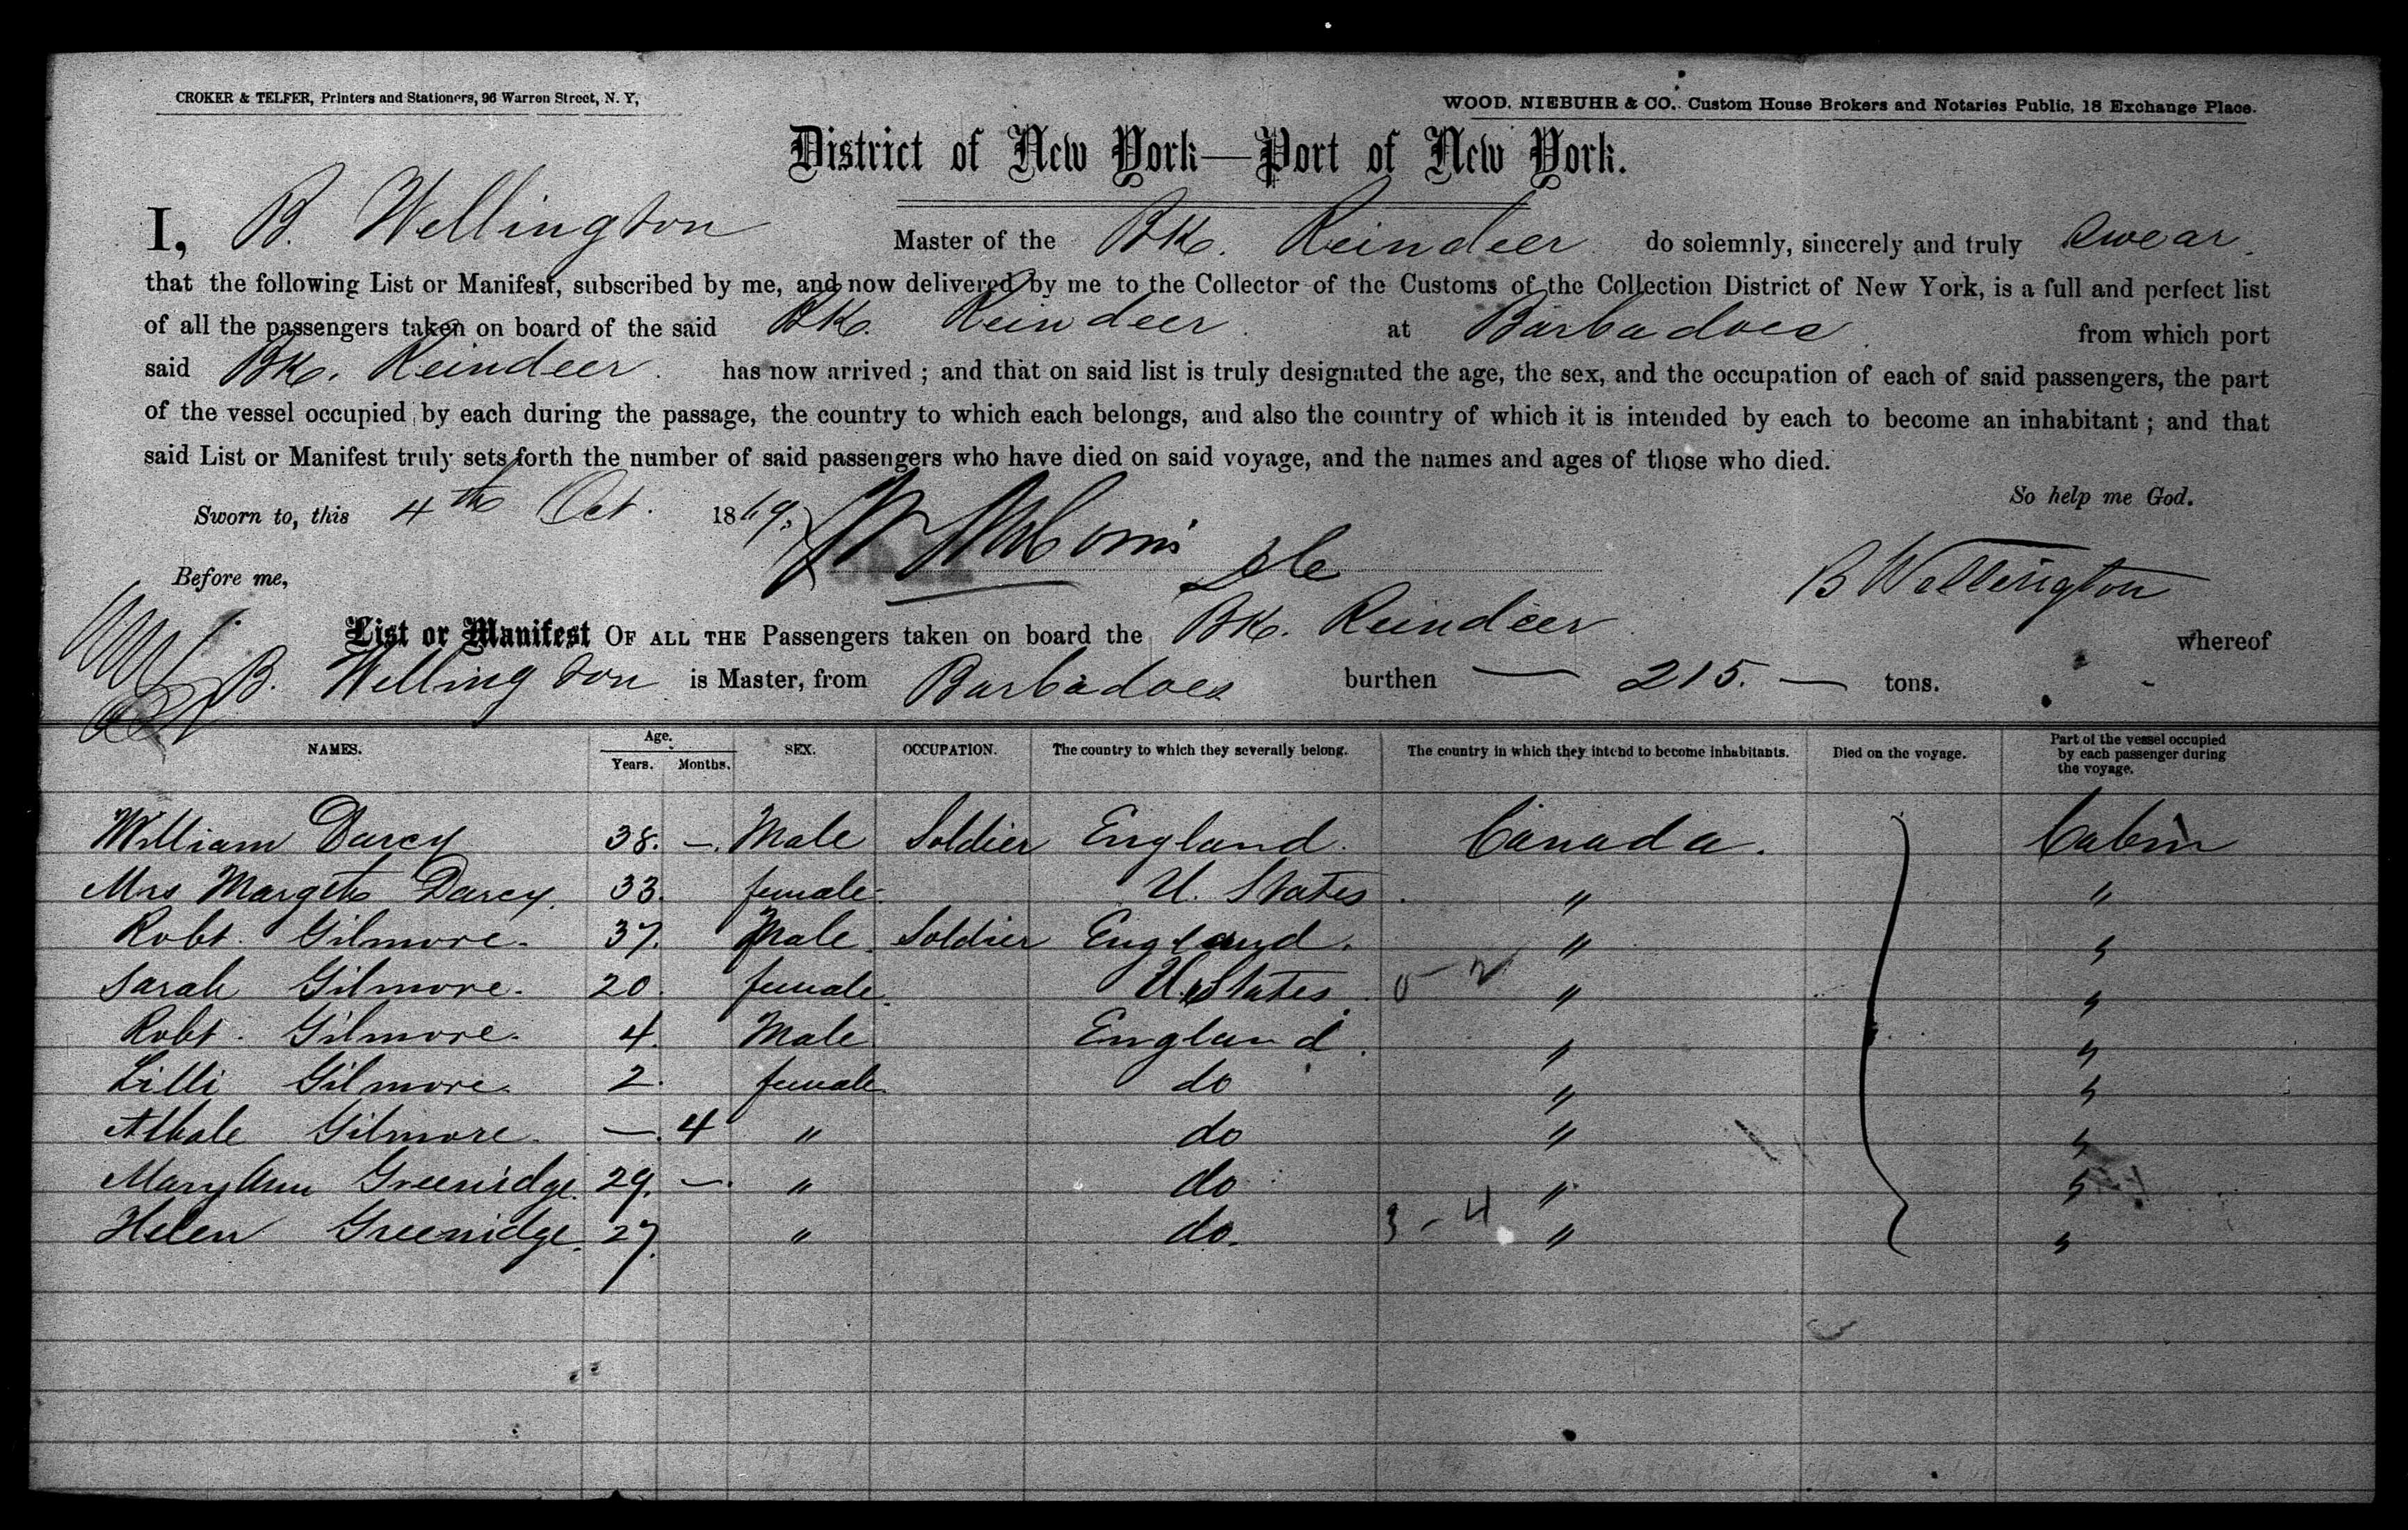 CROKER & TELFER, Printers and Stationers, 96 Warren Street, N. Y,
WOOD, NIEBUHR & CO., Custom House Brokers and Notaries Public, 18 Exchange Place.
District of New York—Port of New York.
I, B. Wellington Master of the Bk. Reindeer do solemnly, sincerely and truly swear.
that the following List or Manifest, subscribed by me, and now delivered by me to the Collector of the Customs of the Collection District of New York, is a full and perfect list
of all the passengers taken on board of the said Bk. Reindeer at Barbadoes from which port
said Bk. Reindeer has now arrived ; and that on said list is truly designated the age, the sex, and the occupation of each of said passengers, the part
of the vessel occupied by each during the passage, the country to which each belongs, and also the country of which it is intended by each to become an inhabitant ; and that
said List or Manifest truly sets forth the number of said passengers who have died on said voyage, and the names and ages of those who died.
So help me God.
Sworn to, this 4th Oct. 1869.
Before me,
B Wellington
List or Manifest OF ALL THE Passengers taken on board the Bk. Reindeer whereof
B. Wellington is Master, from Barbadoes burthen — 215. — tons.
NAMES. Age. Years. Months. SEX. OCCUPATION. The country to which they severally belong. The country in which they intend to become inhabitants. Died on the voyage. Part of the vessel occupied by each passenger during the voyage.
William Darcy 38. —. Male Soldier England. Canada. Cabin
Mrs Margth Darcy. 33. female. U. States " "
Robt. Gilmore. 37. Male. Soldier England. " "
Sarah Gilmore. 20. female. U. States. " "
Robt. Gilmore. 4. Male England. " "
Lilli Gilmore. 2. female do " "
Gilmore. —. 4 " do " "
Mary Ann Greenidge. 29. —. " do " "
Helen Greenidge. 27. " do. 3 - 4 " "